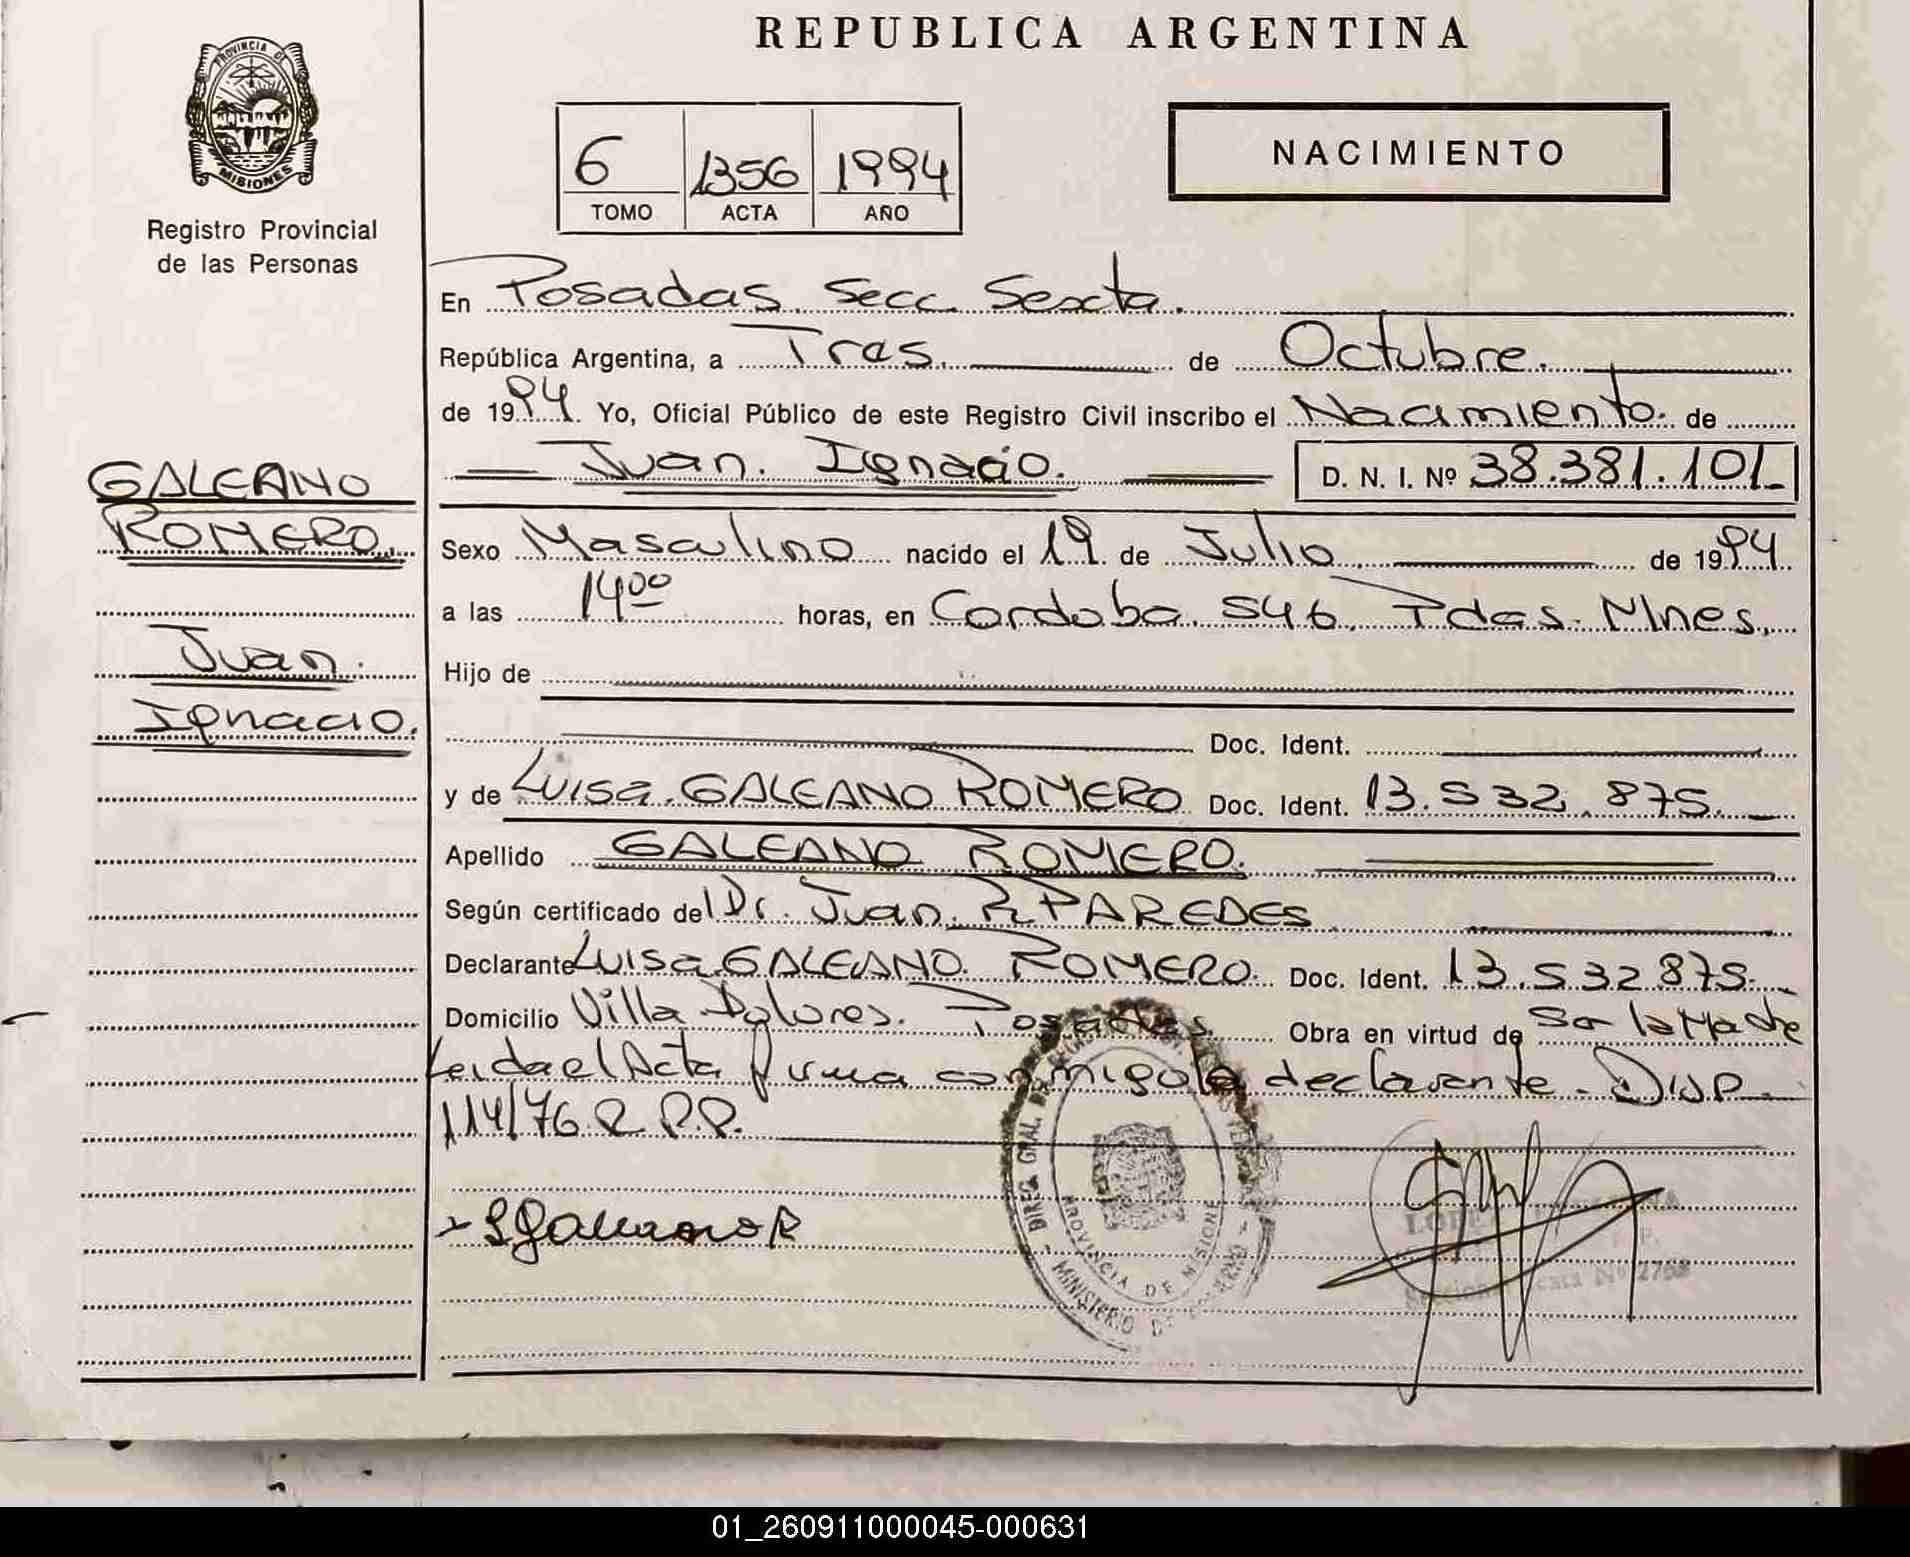 REPUBLICA ARGENTINA
PROVINCIA DE
MISIONES
Registro Provincial
de las Personas
6 1356 1994
TOMO ACTA AÑO
NACIMIENTO
En Posadas. Secc. Sexta.
República Argentina, a Tres. de Octubre.
de 1994. Yo, Oficial Público de este Registro Civil inscribo el Nacimiento. de
Juan. Ignacio. D. N. I. Nº 38.381.101
GALEANO
ROMERO.
Juan.
Ignacio.
Sexo Masculino nacido el 19. de Julio de 1994
a las 14⁰⁰ horas, en Cordoba. 546. Pdas. Mnes.
Hijo de
Doc. Ident.
y de Luisa. GALEANO ROMERO Doc. Ident. 13.532.875.
Apellido GALEANO ROMERO.
Según certificado del Dr. Juan. R. PAREDES
Declarante Luisa GALEANO. ROMERO. Doc. Ident. 13.532.875.
Domicilio Villa Dolores. Posadas. Obra en virtud de Ser la Madre
Leida el Acta firma conmigo la declarante. Disp.
114/76 R.P.P.
LGaleano R
DIREC. GRAL. DE
PROVINCIA DE MISIONES
MINISTERIO DE GOBIERNO
Nº 2768
01_260911000045-000631